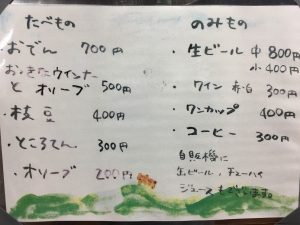 たべもの
・おでん 700円
・おっきなウインナー
と オリーブ 500円
・枝豆 400円
・ところてん 300円
・オリーブ 200円
のみもの
・生ビール 中 800円
小 400円
・ワイン 赤白 300円
・ワンカップ 400円
・コーヒー 300円
自販機に
生ビール・チューハイ
ジュースもございます。